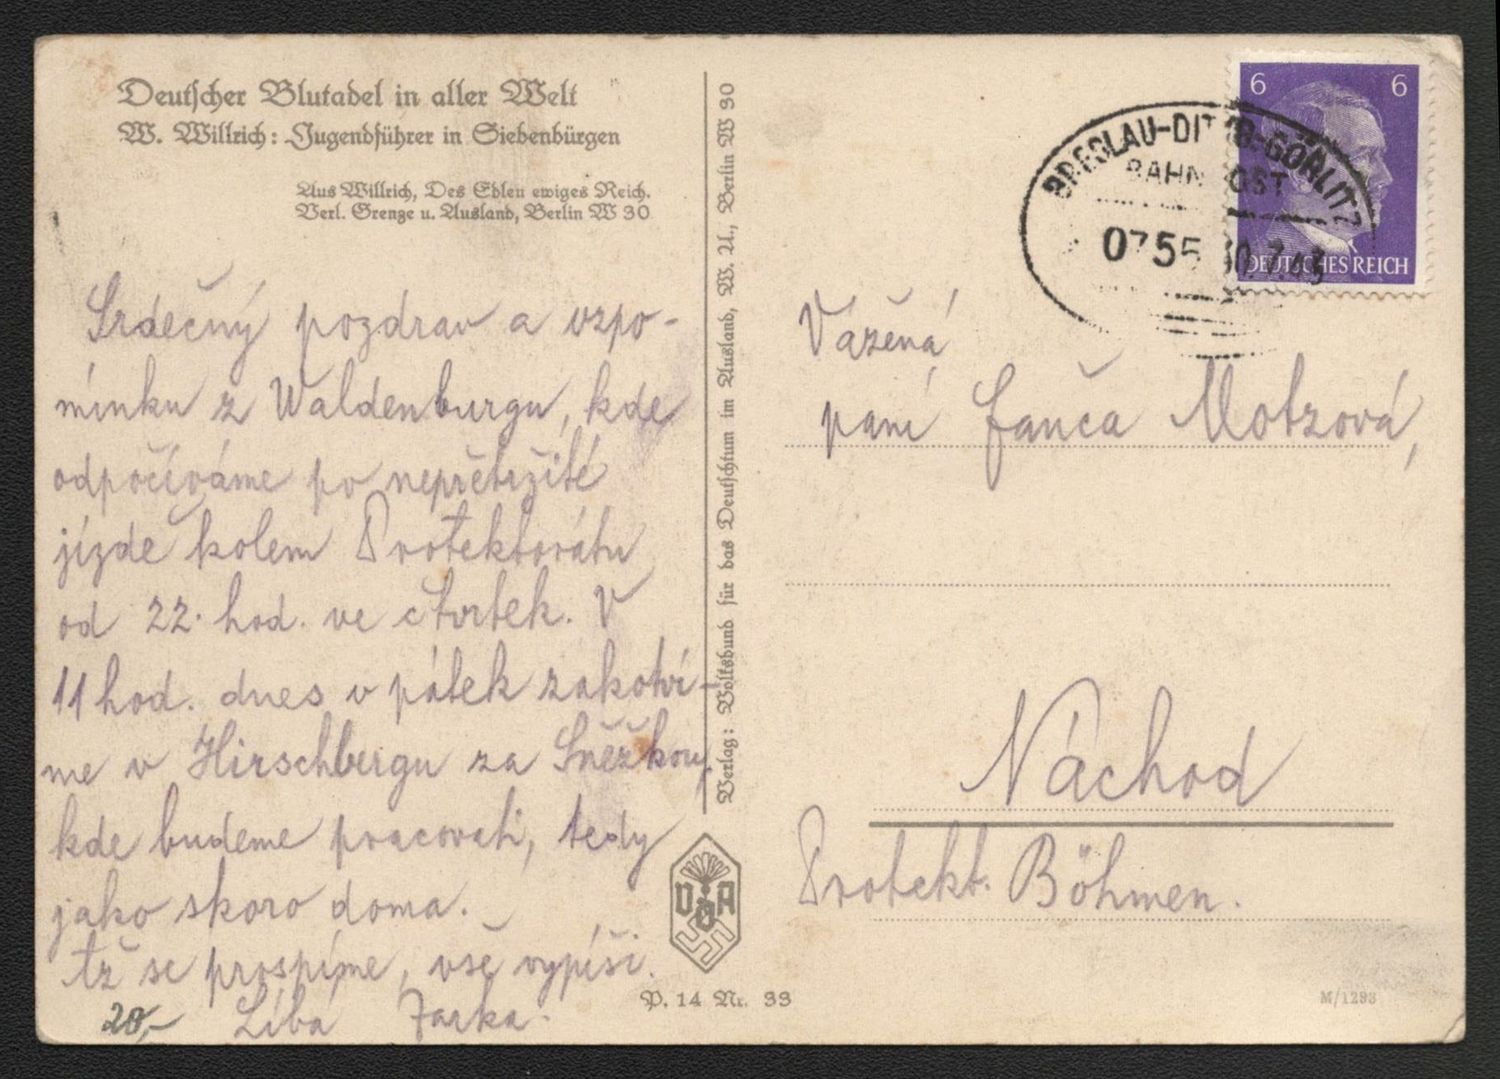 Deutscher Blutadel in aller Welt
W. Willrich: Jugendführer in Siebenbürgen
Aus Willrich, Des Edlen ewiges Reich.
Verl. Grenze u. Ausland, Berlin W 30
Srdečný pozdrav a vzpo-
mínku z Waldenburgu, kde
odpočíváme po nepřetržité
jízdě kolem Protektorátu
od 22. hod. ve čtvrtek. V
11 hod. dnes v pátek zakotví-
me v Hirschbergu za Sněžkou,
kde budeme pracovati, tedy
jako skoro doma.
se prospíme, vše vypíši.
Líbá Jarka.
20,-
Verlag: Volksbund für das Deutschtum im Ausland, W. U., Berlin W 30
VDA
P. 14 Nr. 33
6 6
DEUTSCHES REICH
BRESLAU- -GÖRLITZ
BAHNPOST
Vážená
paní Fanča Motzová,
Náchod
Protekt. Böhmen.
M/1293